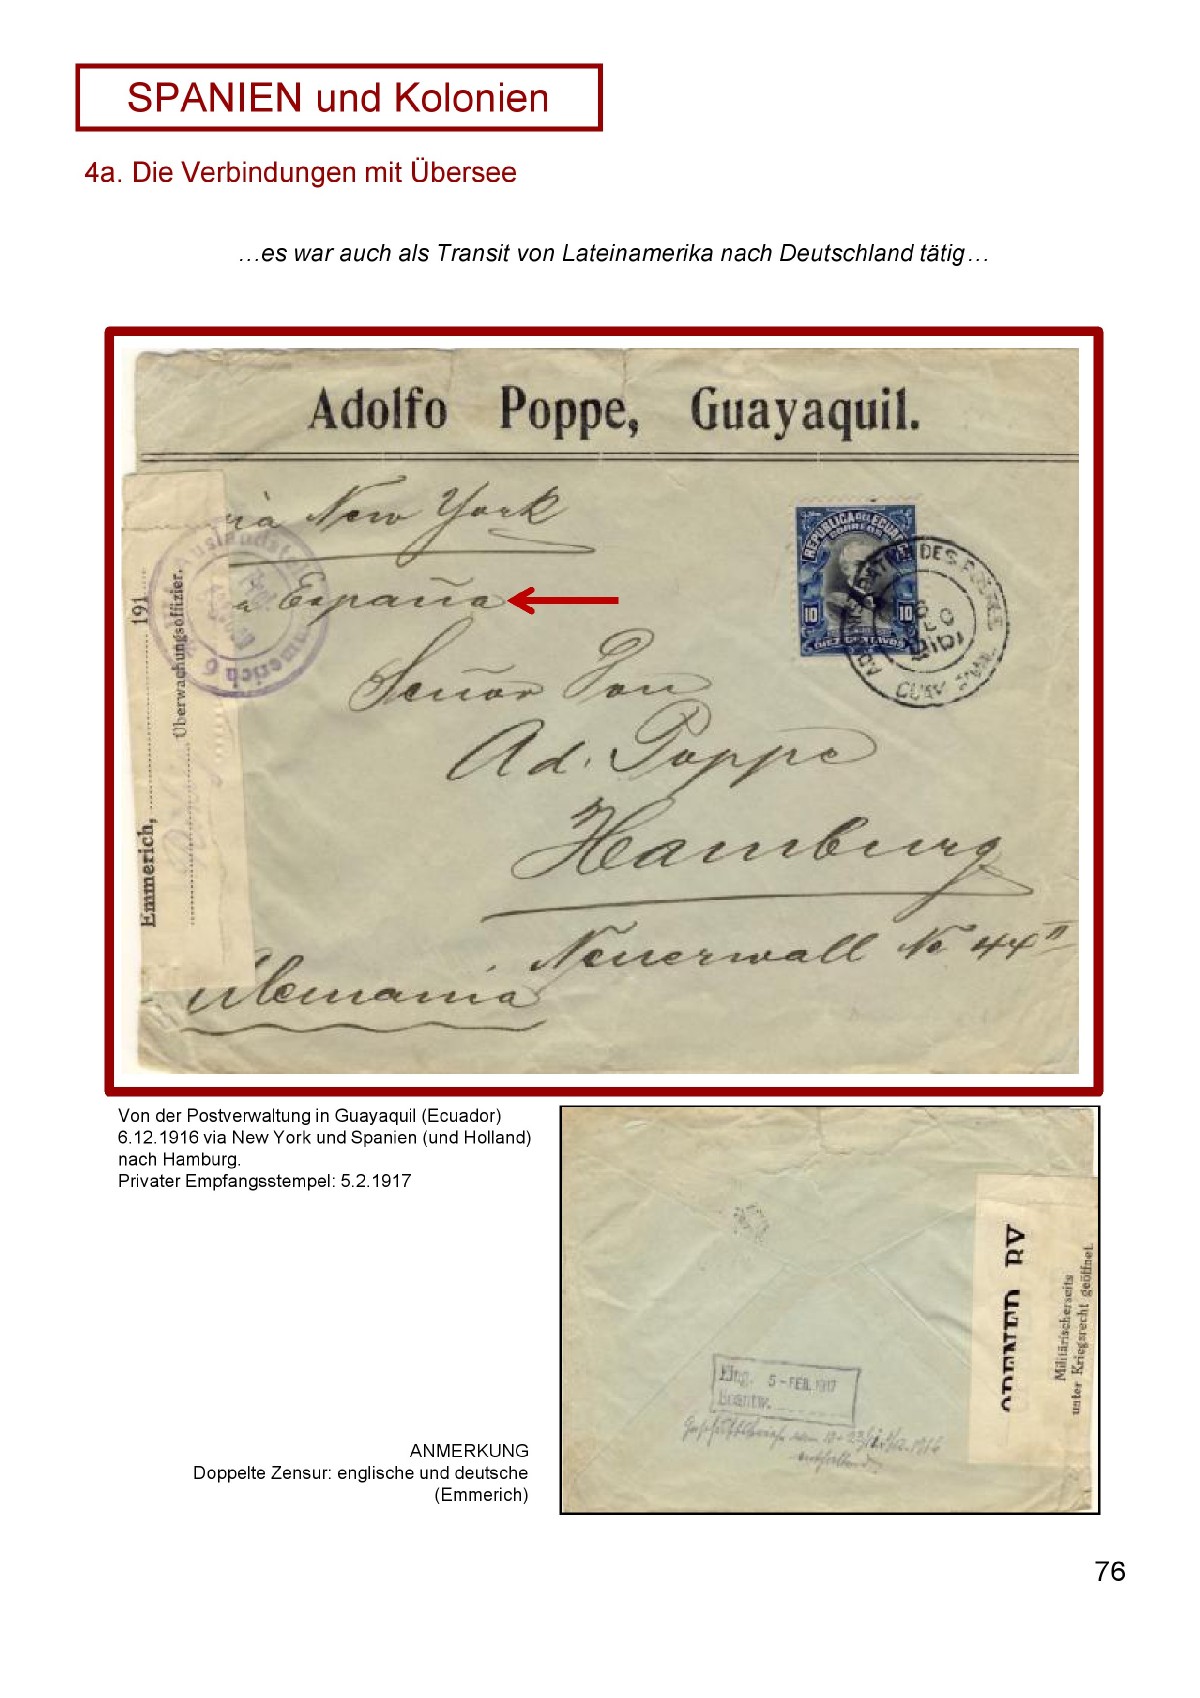 SPANIEN und Kolonien
4a. Die Verbindungen mit Übersee
…es war auch als Transit von Lateinamerika nach Deutschland tätig…
Adolfo Poppe, Guayaquil.
via New York
a España
Señor Don
Ad. Poppe
Hamburg
Neuerwall No 44 II
Alemania
Emmerich, 191
Überwachungsoffizier.
Auslandste
mmerich 6
REPUBLICA DEL ECUADOR
CORREOS
10 10
DIEZ CENTAVOS
DE CORREOS
GUAYAQUIL
Von der Postverwaltung in Guayaquil (Ecuador)
6.12.1916 via New York und Spanien (und Holland)
nach Hamburg.
Privater Empfangsstempel: 5.2.1917
OPENED BY
Militärischerseits
unter Kriegsrecht geöffnet.
Eing. 5-FEB. 1917
Beantw.
ANMERKUNG
Doppelte Zensur: englische und deutsche
(Emmerich)
76